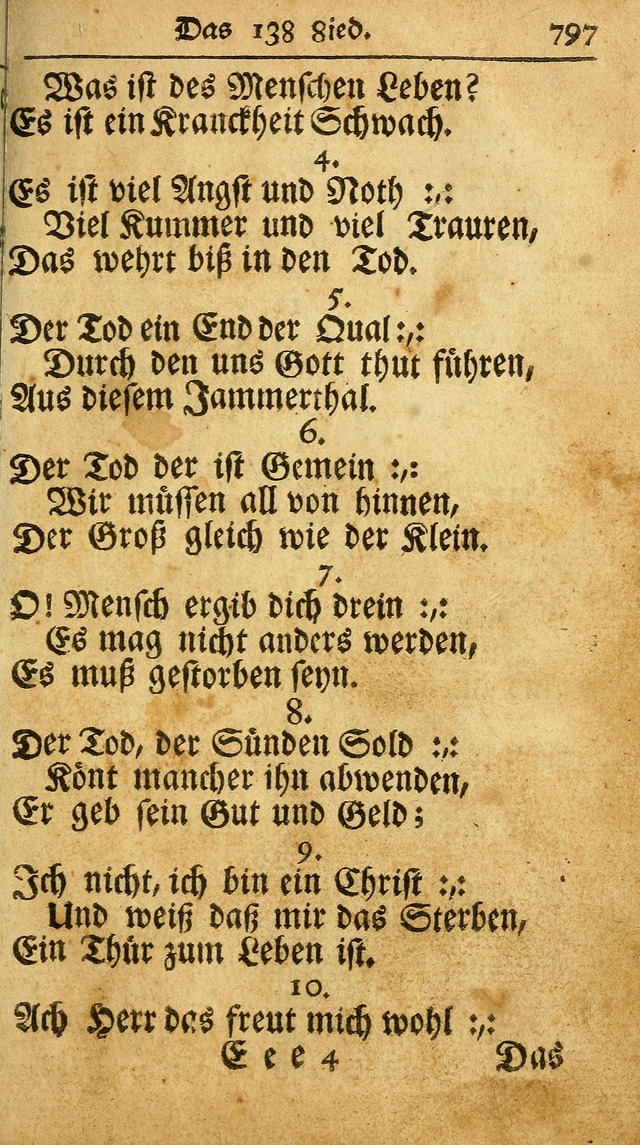 Das 138 Lied. 797
Was ist des Menschen Leben?
Es ist ein Kranckheit Schwach.
4.
Es ist viel Angst und Noth :,:
Viel Kummer und viel Trauren,
Das wehrt biß in den Tod.
5.
Der Tod ein End der Qual :,:
Durch den uns Gott thut führen,
Aus diesem Jammerthal.
6.
Der Tod der ist Gemein :,:
Wir müssen all von hinnen,
Der Groß gleich wie der Klein.
7.
O! Mensch ergib dich drein :,:
Es mag nicht anders werden,
Es muß gestorben seyn.
8.
Der Tod, der Sünden Sold :,:
Könt mancher ihn abwenden,
Er geb sein Gut und Geld;
9.
Ich nicht, ich bin ein Christ :,:
Und weiß daß mir das Sterben,
Ein Thür zum Leben ist.
10.
Ach Herr das freut mich wohl :,:
E e e 4 Das